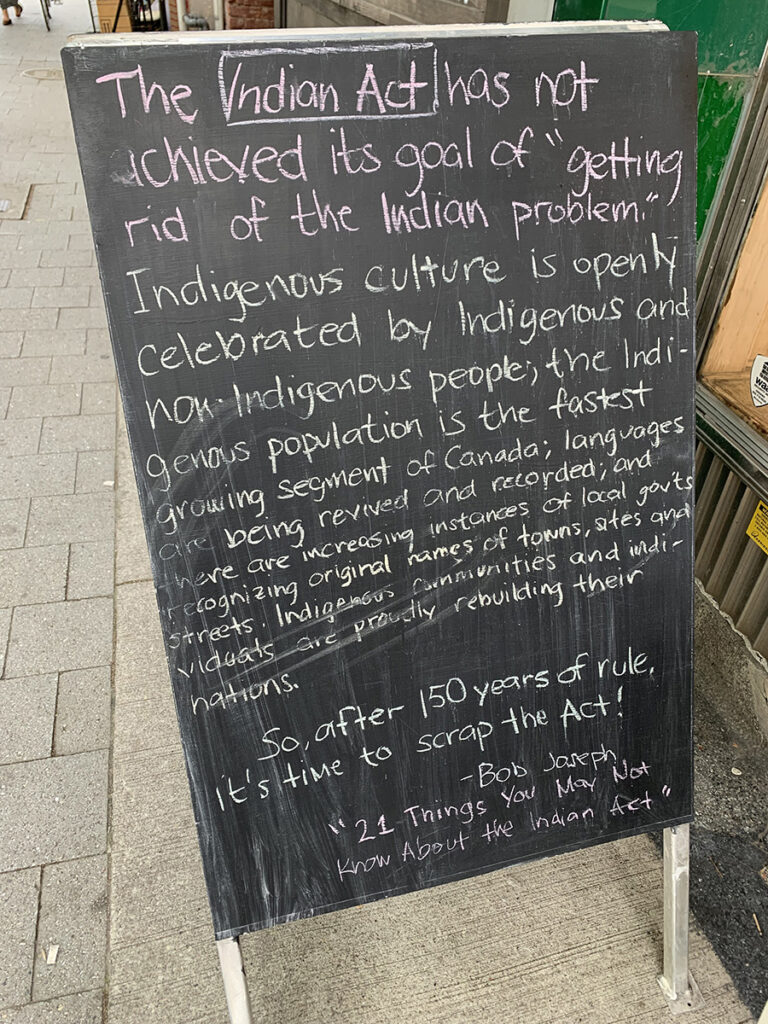 The Indian Act has not
achieved its goal of "getting
rid of the Indian problem."
Indigenous culture is openly
celebrated by Indigenous and
non-Indigenous people; the Indi-
genous population is the fastest
growing segment of Canada; languages
are being revived and recorded; and
there are increasing instances of local gov'ts
recognizing original names of towns, sites and
streets. Indigenous communities and indi-
viduals are proudly rebuilding their
nations.
So, after 150 years of rule,
it's time to scrap the Act!
-Bob Joseph
"21 Things You May Not
Know About the Indian Act"